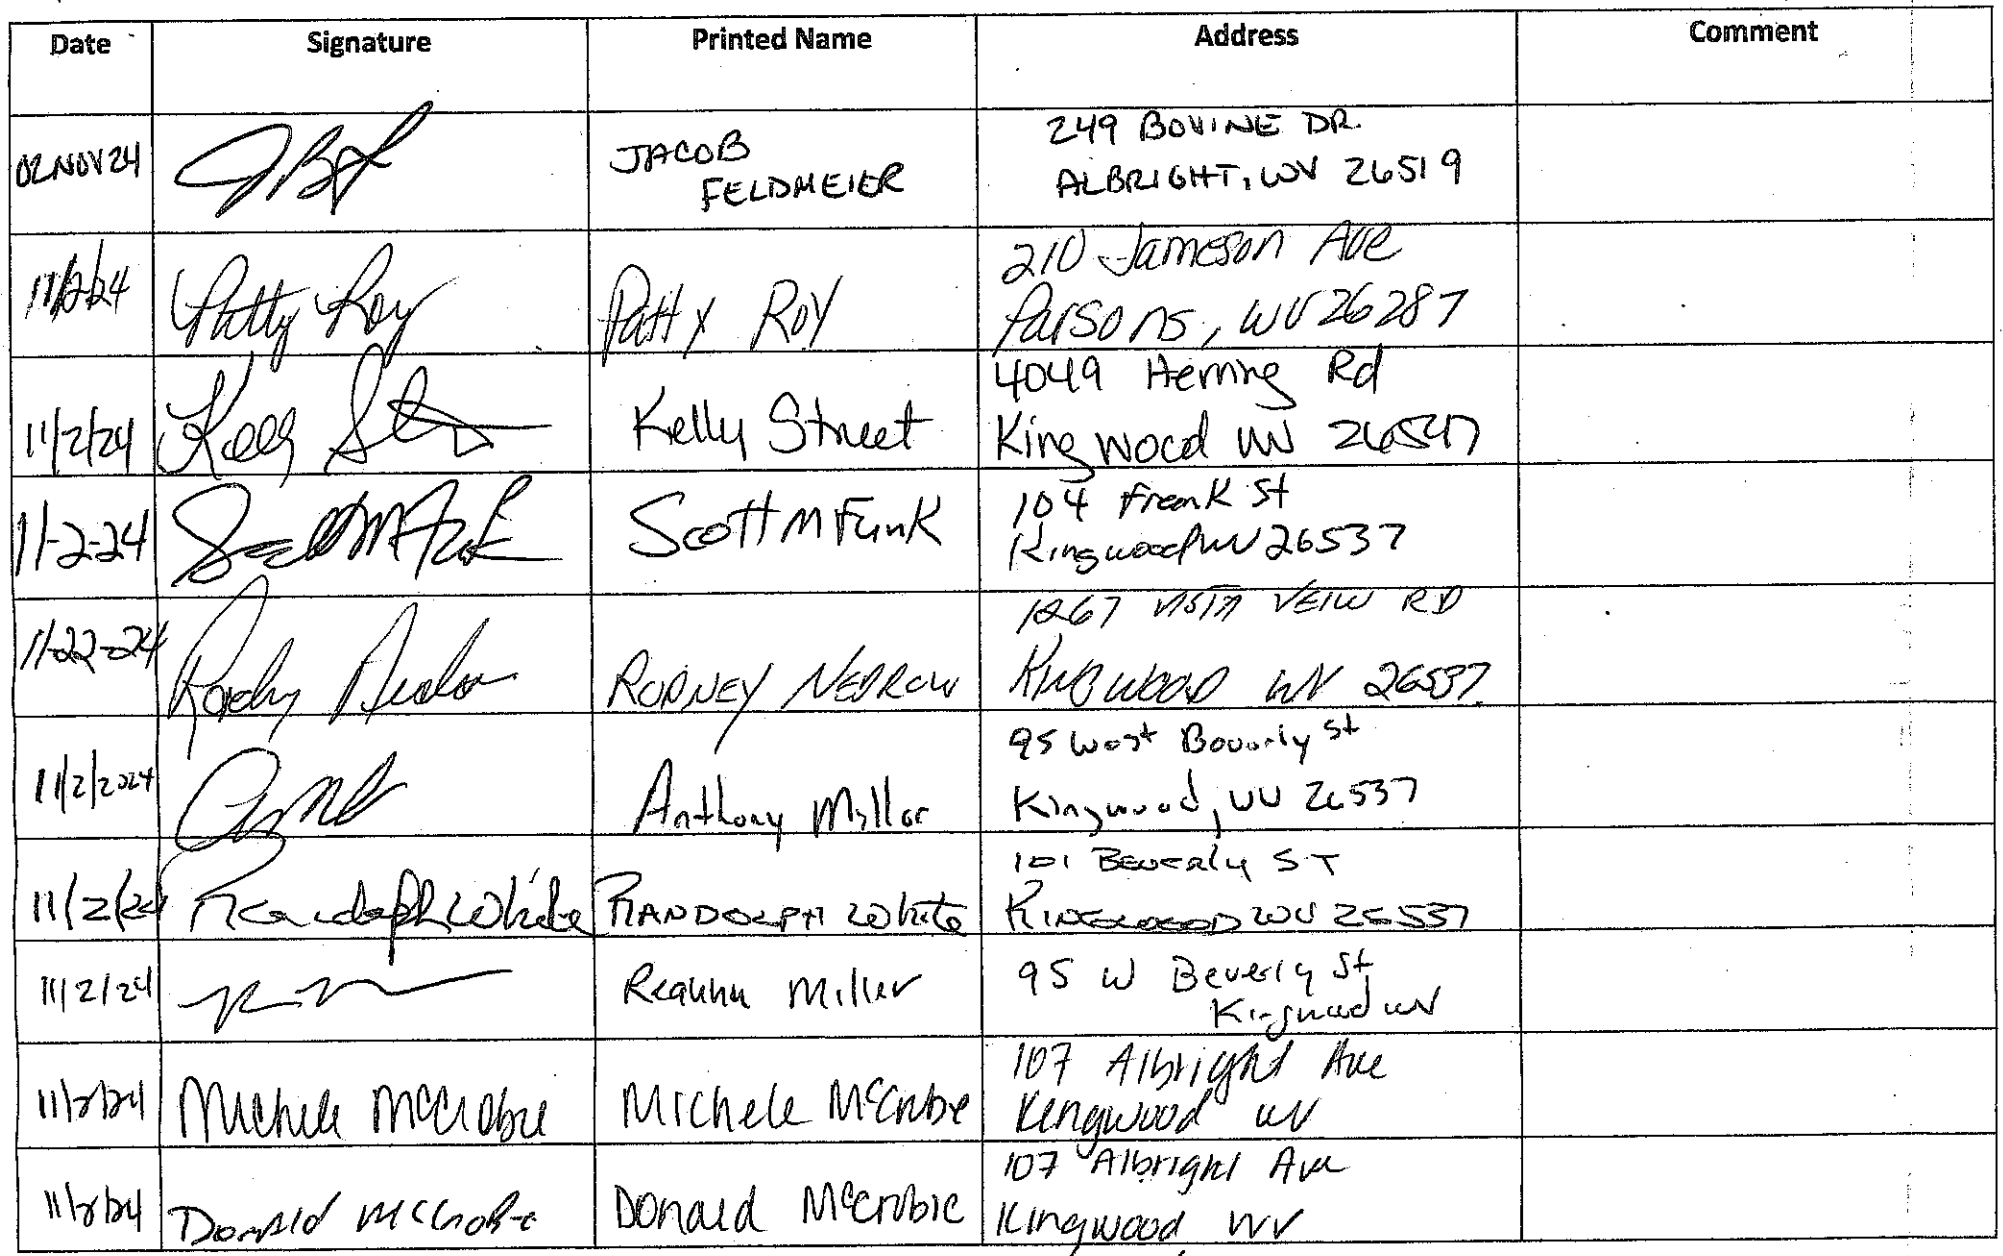 Date Signature Printed Name Address Comment
02NOV24 JACOB 249 BOVINE DR.
FELDMEIER ALBRIGHT, WV 26519
11/2/24 Patty Roy Patty Roy 210 Jameson Ave
Parsons, WV 26287
11/2/24 Kelly Street 4049 Herring Rd
Kingwood WV 26537
11-2-24 Scott M Funk Scott M Funk 104 Frank St
Kingwood WV 26537
11-22-24 1267 VISTA VEIW RD
RODNEY NEDROW KINGWOOD WV 26537
11/2/2024 95 West Beverly St
Anthony Miller Kingwood, WV 26537
11/2/24 Randolph White RANDOLPH White 101 Beverly ST
KINGWOOD WV 26537
11/2/24 Miller 95 W Beverly St
Kingwood WV
11/2/24 Michele McCrobie Michele McCrobie 107 Albright Ave
Kingwood WV
11/2/24 Donald McCrobie Donald McCrobie 107 Albright Ave
Kingwood WV